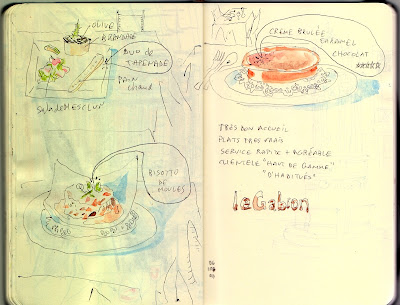 OLIVE
DUO de
TAPENADE
PAIN
chaud
Salade MESCLUN
RISOTTO
DE
MOULES
CREME BRULÉE
CARAMEL
CHOCOLAT
TRÈS BON ACCUEIL
PLATS TRES FRAIS
SERVICE RAPIDE + AGRÉABLE
CLIENTELE "HAUT DE GAMME"
"D'HABITUÉS"
leGabion